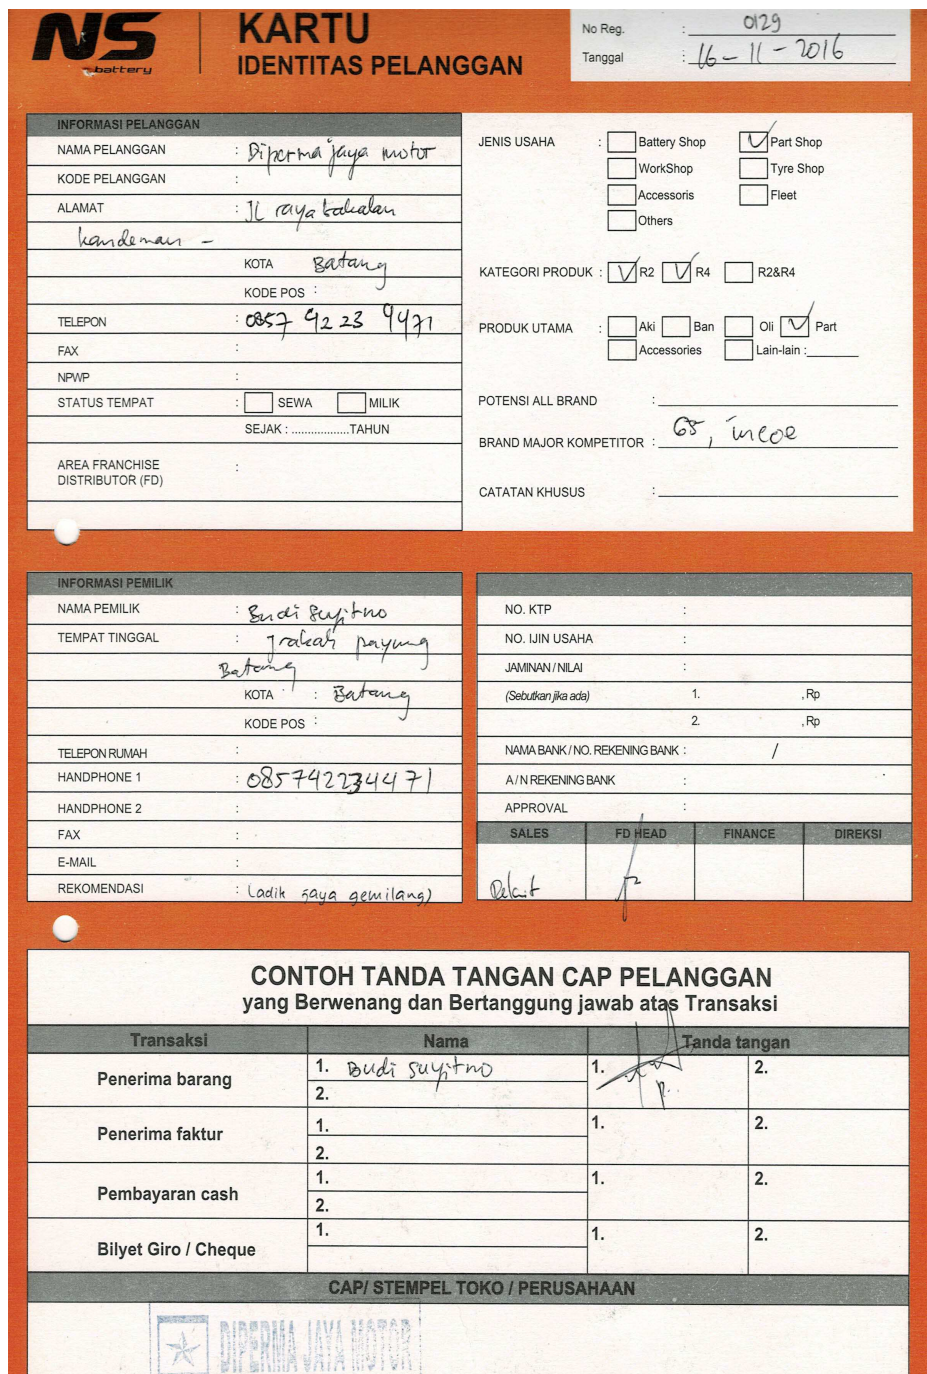 NS
battery
KARTU
IDENTITAS PELANGGAN
No Reg. : 0129
Tanggal : 16 - 11 - 2016
INFORMASI PELANGGAN
NAMA PELANGGAN : Diperma jaya motor
KODE PELANGGAN :
ALAMAT : Jl raya bakalan
kandeman -
KOTA Batang
KODE POS :
TELEPON : 0857 4223 4471
FAX :
NPWP :
STATUS TEMPAT : SEWA MILIK
SEJAK : ..................TAHUN
AREA FRANCHISE :
DISTRIBUTOR (FD)
JENIS USAHA : Battery Shop Part Shop
WorkShop Tyre Shop
Accessoris Fleet
Others
KATEGORI PRODUK : R2 R4 R2&R4
PRODUK UTAMA : Aki Ban Oli Part
Accessories Lain-lain :
POTENSI ALL BRAND :
BRAND MAJOR KOMPETITOR : GS, incoe
CATATAN KHUSUS :
INFORMASI PEMILIK
NAMA PEMILIK : Budi Suyitno
TEMPAT TINGGAL : Jrakah payung
Batang
KOTA : Batang
KODE POS :
TELEPON RUMAH :
HANDPHONE 1 : 085742234471
HANDPHONE 2 :
FAX :
E-MAIL :
REKOMENDASI : (adik jaya gemilang)
NO. KTP :
NO. IJIN USAHA :
JAMINAN / NILAI :
(Sebutkan jika ada) 1. , Rp
2. , Rp
NAMA BANK / NO. REKENING BANK : /
A / N REKENING BANK :
APPROVAL :
SALES FD HEAD FINANCE DIREKSI
CONTOH TANDA TANGAN CAP PELANGGAN
yang Berwenang dan Bertanggung jawab atas Transaksi
Transaksi Nama Tanda tangan
Penerima barang 1. Budi Suyitno 1. 2.
2.
Penerima faktur 1. 1. 2.
2.
Pembayaran cash 1. 1. 2.
2.
Bilyet Giro / Cheque 1. 1. 2.
CAP/ STEMPEL TOKO / PERUSAHAAN
DIPERMA JAYA MOTOR